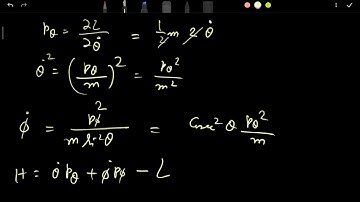 p_θ = ∂L/∂θ̇ = 1/2 m 2 θ̇
θ̇² = (p_θ/m)² = p_θ²/m²
φ̇ = p_φ²/(m sin²θ) = cosec²θ p_θ²/m
H = θ̇ p_θ + φ̇ p_φ − L